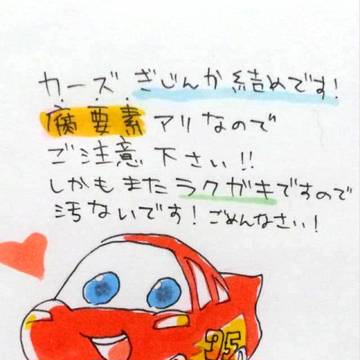 カーズ ぎじんか 結めです!
腐要素 アリなので
ご注意 下さい!!
しかもまたラクガキですので
汚ないです!ごめんなさい!
95